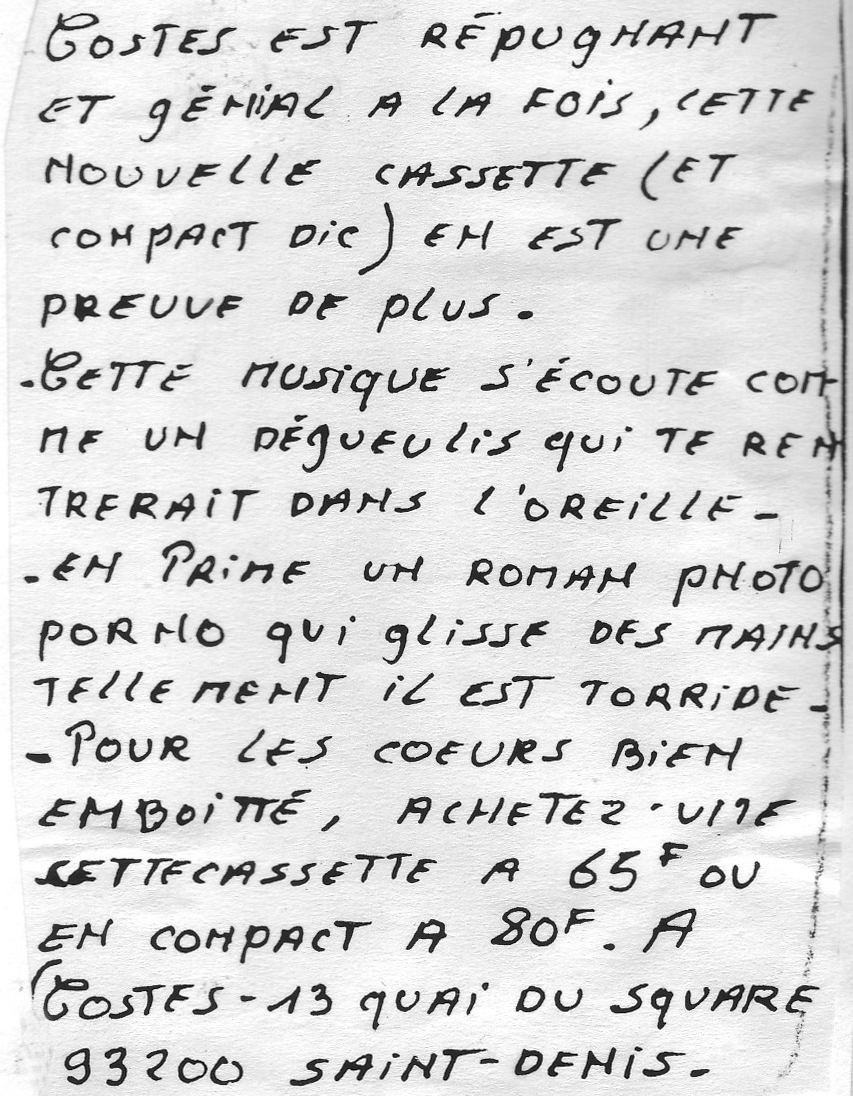 COSTES EST RÉPUGNANT
ET GÉNIAL A LA FOIS, CETTE
NOUVELLE CASSETTE (ET
COMPACT DIC) EN EST UNE
PREUVE DE PLUS.
-CETTE MUSIQUE S'ÉCOUTE COM-
ME UN DÉGUEULIS QUI TE REN
TRERAIT DANS L'OREILLE-
-EN PRIME UN ROMAN PHOTO
PORNO QUI GLISSE DES MAINS
TELLEMENT IL EST TORRIDE-
-POUR LES COEURS BIEN
EMBOITTÉ, ACHETEZ-VITE
CETTE CASSETTE A 65F OU
EN COMPACT A 80F. A
(COSTES-13 QUAI DU SQUARE
93200 SAINT-DENIS-